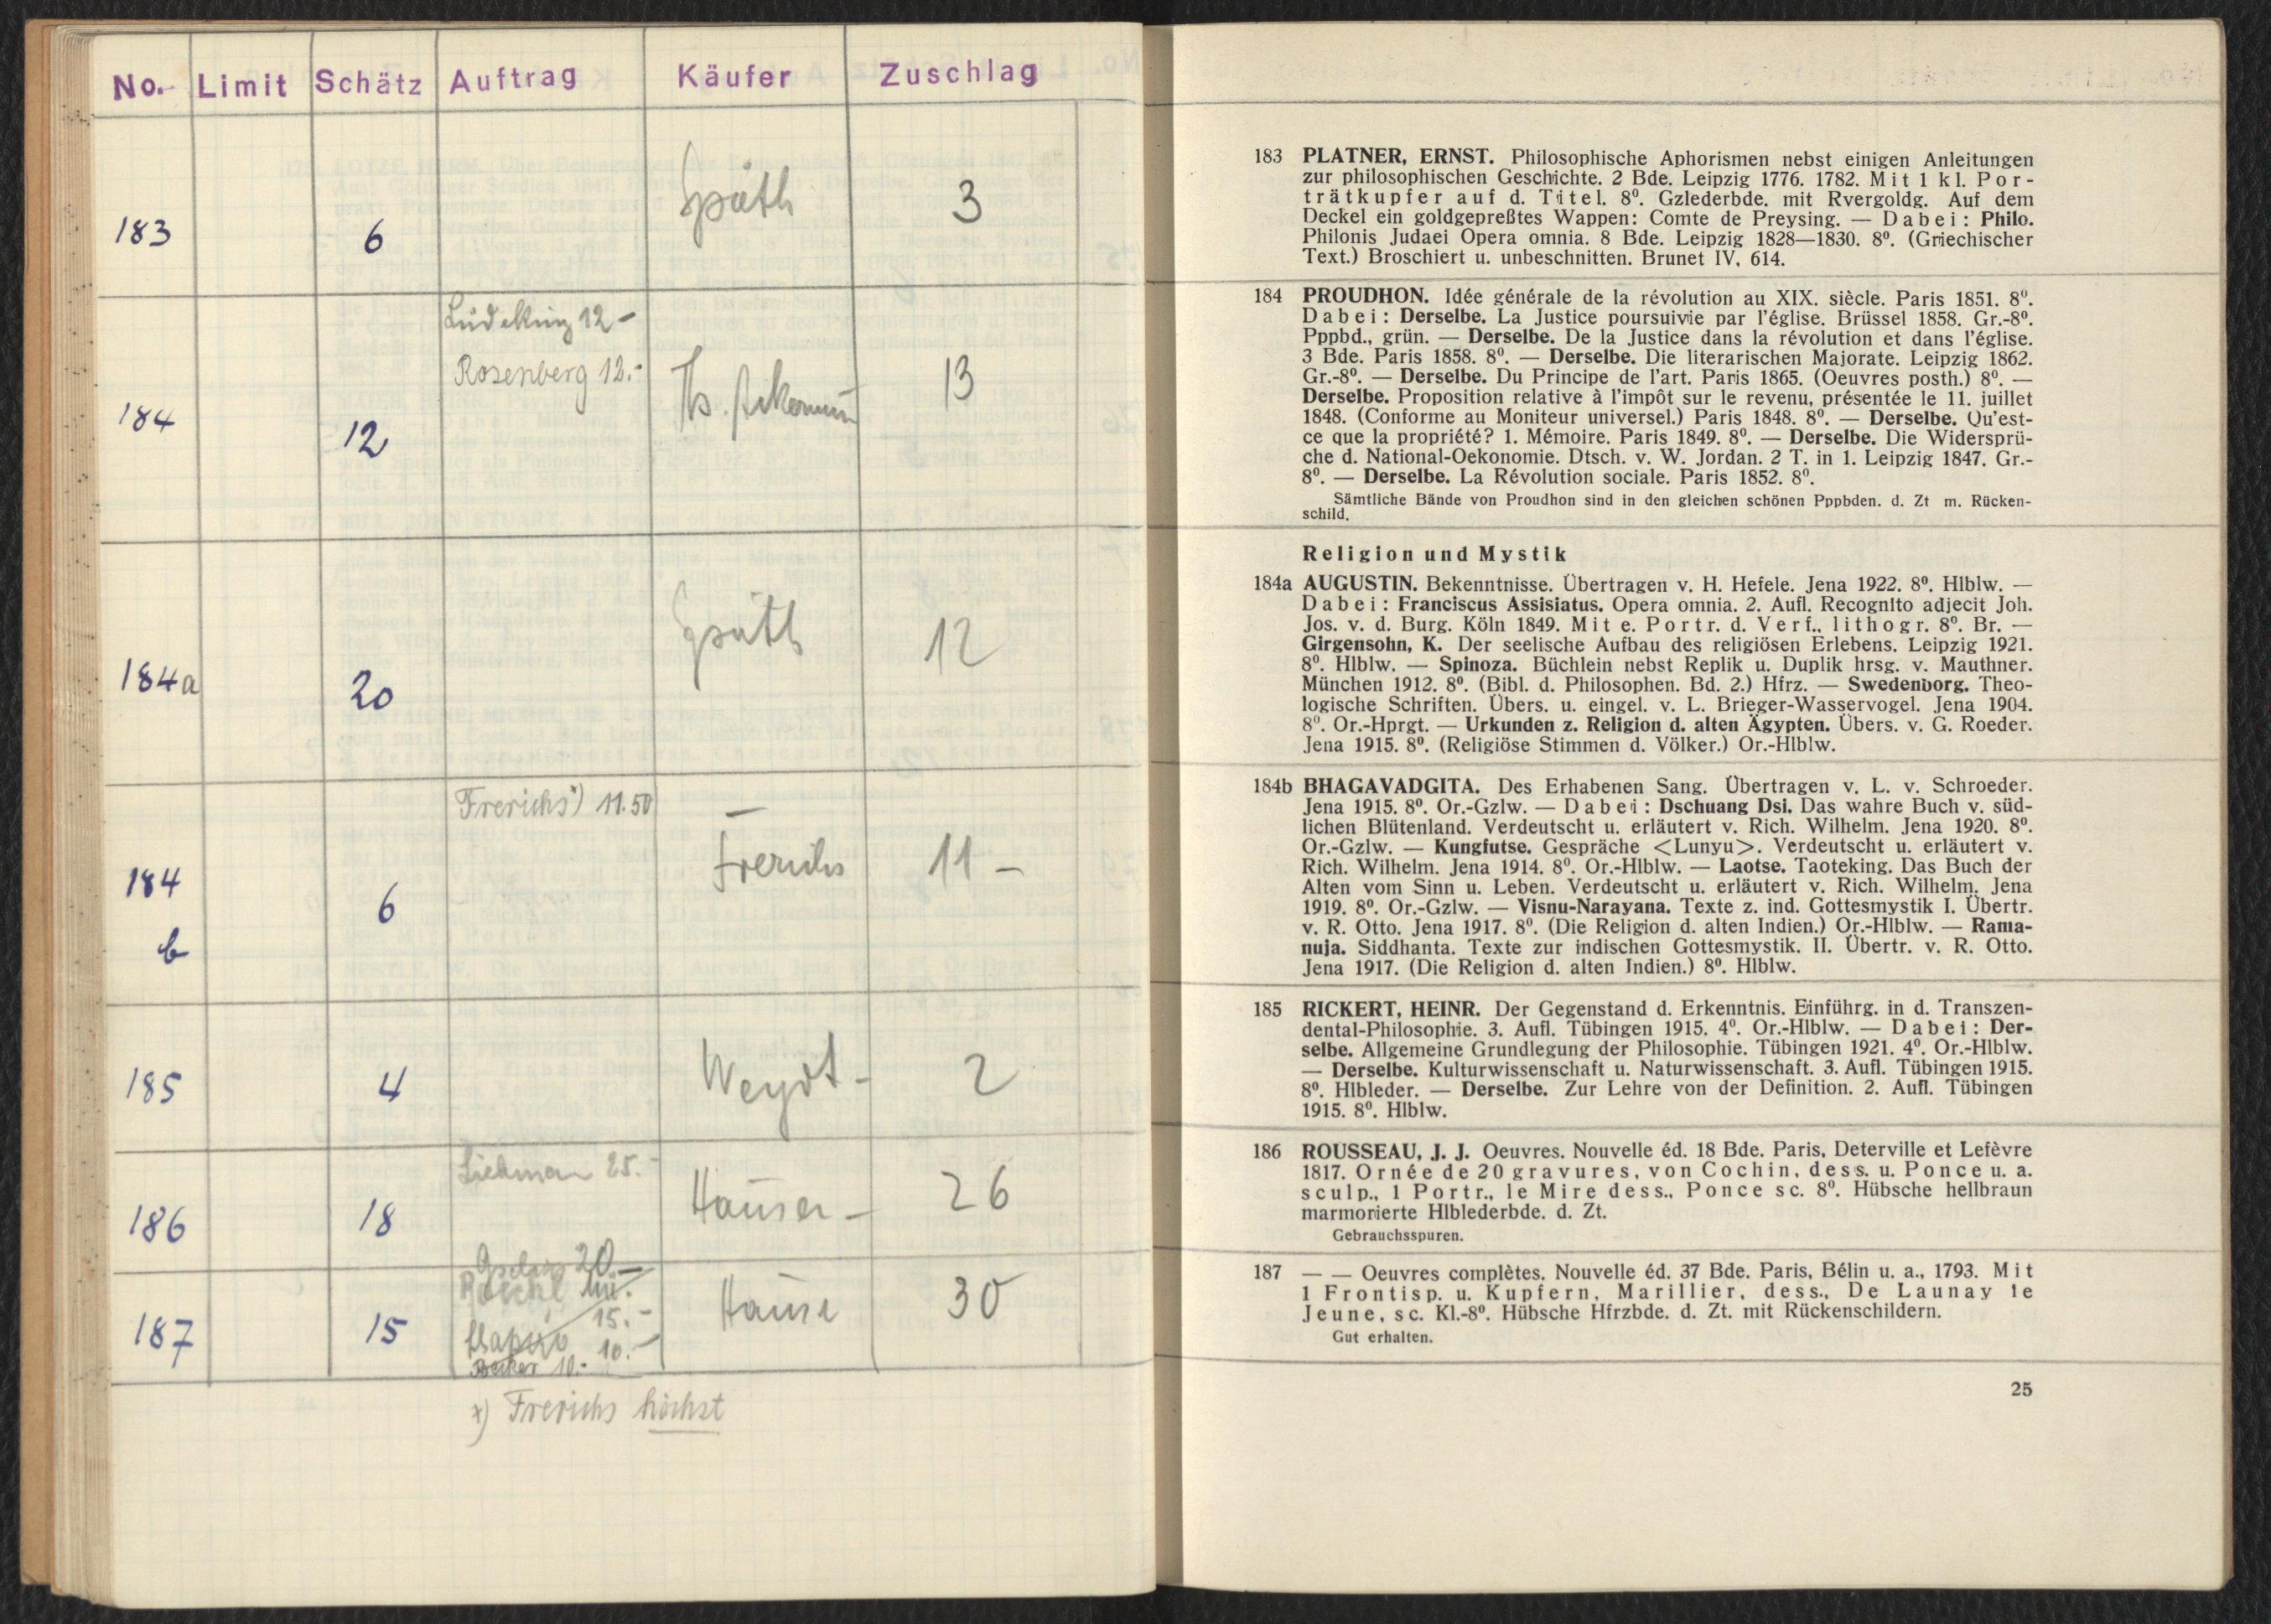 No. Limit Schätz Auftrag Käufer Zuschlag
183 6 Späth 3
Lüdeking 12 –
Rosenberg 12.-
184 12 Th. 13
184a 20 Späth 12
Frerichs x) 11.50
184 b 6 Frerichs 11 –
185 4 Weydt - 2
Liebman 25.-
186 18 Hauser - 26
20.–
15.-
10.-
Becker 10.-
187 15 Hauser 30
x) Frerichs höchst
183 PLATNER, ERNST. Philosophische Aphorismen nebst einigen Anleitungen
zur philosophischen Geschichte. 2 Bde. Leipzig 1776. 1782. Mit 1 kl. Por-
trätkupfer auf d. Titel. 8⁰. Gzlederbde. mit Rvergoldg. Auf dem
Deckel ein goldgepreßtes Wappen: Comte de Preysing. — Dabei: Philo.
Philonis Judaei Opera omnia. 8 Bde. Leipzig 1828—1830. 8⁰. (Griechischer
Text.) Broschiert u. unbeschnitten. Brunet IV, 614.
184 PROUDHON. Idée générale de la révolution au XIX. siècle. Paris 1851. 8⁰.
Dabei: Derselbe. La Justice poursuivie par l'église. Brüssel 1858. Gr.-8⁰.
Pppbd., grün. — Derselbe. De la Justice dans la révolution et dans l'église.
3 Bde. Paris 1858. 8⁰. — Derselbe. Die literarischen Majorate. Leipzig 1862.
Gr.-8⁰. — Derselbe. Du Principe de l'art. Paris 1865. (Oeuvres posth.) 8⁰. —
Derselbe. Proposition relative à l'impôt sur le revenu, présentée le 11. juillet
1848. (Conforme au Moniteur universel.) Paris 1848. 8⁰. — Derselbe. Qu'est-
ce que la propriété? 1. Mémoire. Paris 1849. 8⁰. — Derselbe. Die Widersprü-
che d. National-Oekonomie. Dtsch. v. W. Jordan. 2 T. in 1. Leipzig 1847. Gr.-
8⁰. — Derselbe. La Révolution sociale. Paris 1852. 8⁰.
Sämtliche Bände von Proudhon sind in den gleichen schönen Pppbden. d. Zt m. Rücken-
schild.
Religion und Mystik
184a AUGUSTIN. Bekenntnisse. Übertragen v. H. Hefele. Jena 1922. 8⁰. Hlblw. —
Dabei: Franciscus Assisiatus. Opera omnia. 2. Aufl. Recognito adjecit Joh.
Jos. v. d. Burg. Köln 1849. Mit e. Portr. d. Verf., lithogr. 8⁰. Br. —
Girgensohn, K. Der seelische Aufbau des religiösen Erlebens. Leipzig 1921.
8⁰. Hlblw. — Spinoza. Büchlein nebst Replik u. Duplik hrsg. v. Mauthner.
München 1912. 8⁰. (Bibl. d. Philosophen. Bd. 2.) Hfrz. — Swedenborg. Theo-
logische Schriften. Übers. u. eingel. v. L. Brieger-Wasservogel. Jena 1904.
8⁰. Or.-Hprgt. — Urkunden z. Religion d. alten Ägypten. Übers. v. G. Roeder.
Jena 1915. 8⁰. (Religiöse Stimmen d. Völker.) Or.-Hlblw.
184b BHAGAVADGITA. Des Erhabenen Sang. Übertragen v. L. v. Schroeder.
Jena 1915. 8⁰. Or.-Gzlw. — Dabei: Dschuang Dsi. Das wahre Buch v. süd-
lichen Blütenland. Verdeutscht u. erläutert v. Rich. Wilhelm. Jena 1920. 8⁰.
Or.-Gzlw. — Kungfutse. Gespräche <Lunyu>. Verdeutscht u. erläutert v.
Rich. Wilhelm. Jena 1914. 8⁰. Or.-Hlblw. — Laotse. Taoteking. Das Buch der
Alten vom Sinn u. Leben. Verdeutscht u. erläutert v. Rich. Wilhelm. Jena
1919. 8⁰. Or.-Gzlw. — Visnu-Narayana. Texte z. ind. Gottesmystik I. Übertr.
v. R. Otto. Jena 1917. 8⁰. (Die Religion d. alten Indien.) Or.-Hlblw. — Rama-
nuja. Siddhanta. Texte zur indischen Gottesmystik. II. Übertr. v. R. Otto.
Jena 1917. (Die Religion d. alten Indien.) 8⁰. Hlblw.
185 RICKERT, HEINR. Der Gegenstand d. Erkenntnis. Einführg. in d. Transzen-
dental-Philosophie. 3. Aufl. Tübingen 1915. 4⁰. Or.-Hlblw. — Dabei: Der-
selbe. Allgemeine Grundlegung der Philosophie. Tübingen 1921. 4⁰. Or.-Hlblw.
— Derselbe. Kulturwissenschaft u. Naturwissenschaft. 3. Aufl. Tübingen 1915.
8⁰. Hlbleder. — Derselbe. Zur Lehre von der Definition. 2. Aufl. Tübingen
1915. 8⁰. Hlblw.
186 ROUSSEAU, J. J. Oeuvres. Nouvelle éd. 18 Bde. Paris, Deterville et Lefèvre
1817. Ornée de 20 gravures, von Cochin, dess. u. Ponce u. a.
sculp., 1 Portr., le Mire dess., Ponce sc. 8⁰. Hübsche hellbraun
marmorierte Hlblederbde. d. Zt.
Gebrauchsspuren.
187 — — Oeuvres complètes. Nouvelle éd. 37 Bde. Paris, Bélin u. a., 1793. Mit
1 Frontisp. u. Kupfern, Marillier, dess., De Launay le
Jeune, sc. Kl.-8⁰. Hübsche Hfrzbde. d. Zt. mit Rückenschildern.
Gut erhalten.
25